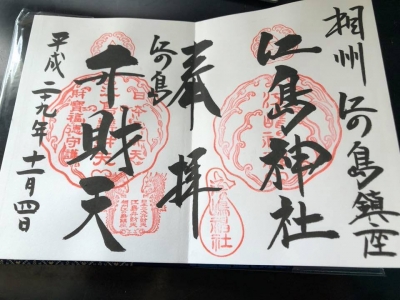 相州江の島鎮座
江島神社
奉拝
江の島
弁財天
平成二十九年十一月四日